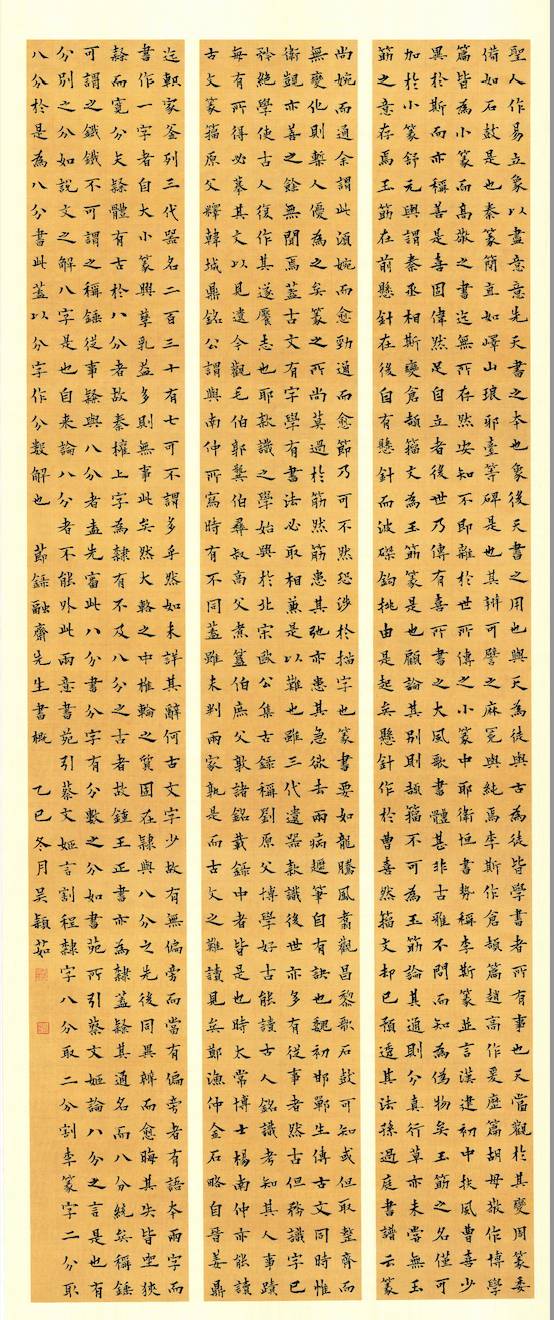 聖人作易立象以盡意意先天書之本也象後天書之用也與天為徒與古為徒皆學書者所有事也天當觀於其變周篆委
備如石鼓是也秦篆簡直如嶧山琅邪臺等碑是也其辨可譬之麻冕與純焉李斯作倉頡篇趙高作爰歷篇胡毋敬作博學
篇皆為小篆而高敬之書迄無所存然安知不即雜於世所傳之小篆中耶衛恒書勢稱李斯篆並言漢建初中扶風曹喜少
異於斯而亦稱善是喜固偉然足自立者後世乃傳有喜所書之大風歌書體甚非古雅不問而知為偽物矣玉筯之名僅可
加於小篆舒元輿謂秦丞相斯變倉頡籀文為玉筯篆是也顧論其別則頡籀不可為玉筯論其通則分真行草亦未嘗無玉
筯之意存焉玉筯在前懸針在後自有懸針而波磔鉤挑由是起矣懸針作於曹喜然籀文却已預透其法孫過庭書譜云篆
尚婉而通余謂此須婉而愈勁通而愈節乃可不然恐涉於描字也篆書要如龍騰鳳翥觀昌黎歌石鼓可知或但取整齊而
無變化則槧人優為之矣篆之所尚莫過於筋然筋患其弛亦患其急欲去兩病趯筆自有訣也魏初邯鄲生傳古文同時惟
衛覬亦善之餘無聞焉蓋古文有字學有書法必取相兼是以難也雖三代遺器款識後世亦多有從事者然古但務識字已
矜絕學使古人復作其遂饜志也耶款識之學始興於北宋歐公集古錄稱劉原父博學好古能讀古人銘識考知其人事蹟
每有所得必摹其文以見遺今觀毛伯敦龔伯彝叔高父煮簋伯庶父敦諸銘載錄中者皆是也時太常博士楊南仲亦能讀
古文篆籀原父釋韓城鼎銘公謂與南仲所寫時有不同蓋雖未判兩家孰是而古文之難讀見矣鄭漁仲金石略自晉姜鼎
迄軹家釜列三代器名二百三十有七可不謂多乎然如未詳其辭何古文字少故有無偏旁而當有偏旁者有語本兩字而
書作一字者自大小篆興孳乳益多則無事此矣然大輅之中椎輪之質固在隸與八分之先後同異辨而愈晦其失皆坐狹
隸而寬分夫隸體有古於八分者故秦權上字為隸有不及八分之古者故鍾王正書亦為隸蓋隸其通名而八分統矣稱錘
可謂之鐵鐵不可謂之稱錘從事隸與八分者盍先審此八分書分字有分數之分如書苑所引蔡文姬論八分之言是也有
分別之分如說文之解八字是也自來論八分者不能外此兩意書苑引蔡文姬言割程隸字八分取二分割李篆字二分取
八分於是為八分書此蓋以分字作分數解也 節錄融齋先生書概 乙巳冬月吳穎茹